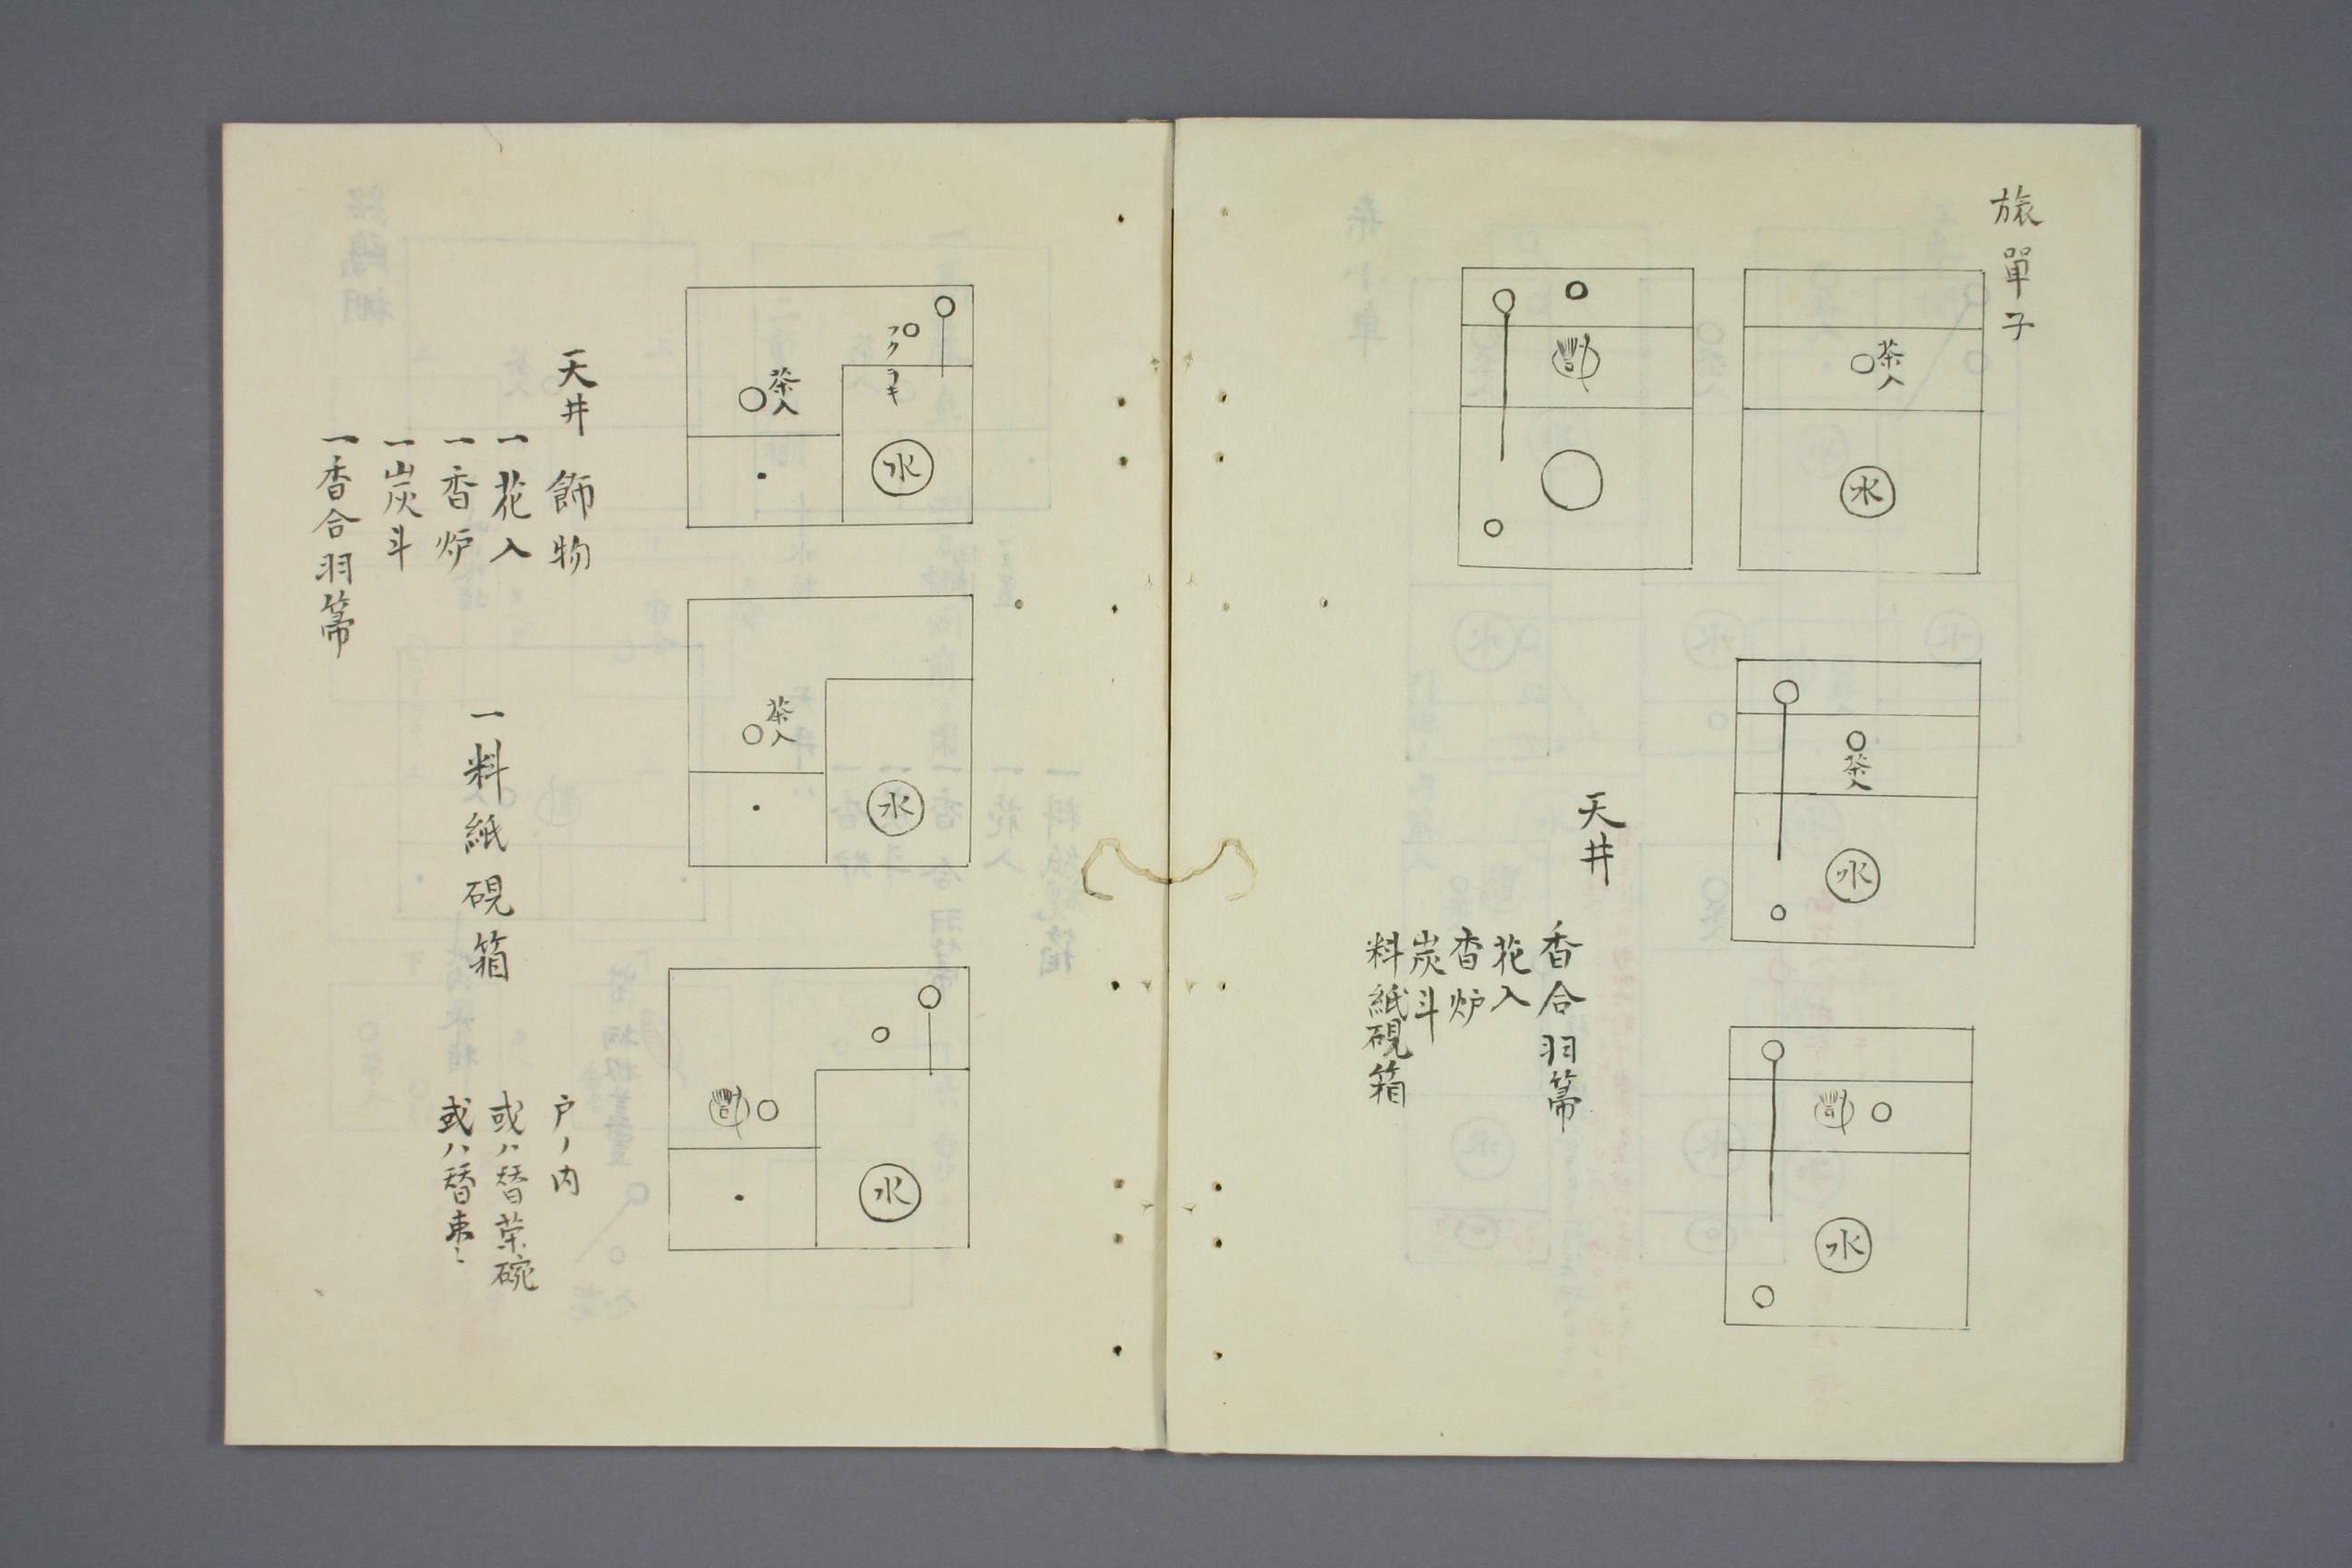 旅單子
茶入
水
茶入
水
水
天井
香合羽箒
花入
香炉
炭斗
料紙硯箱
フクヲキ
茶入
水
茶入
水
水
天井 飾物
一花入
一香炉
一炭斗
一香合羽箒
一料紙硯箱
戸ノ内
或ハ替茶碗
或ハ替